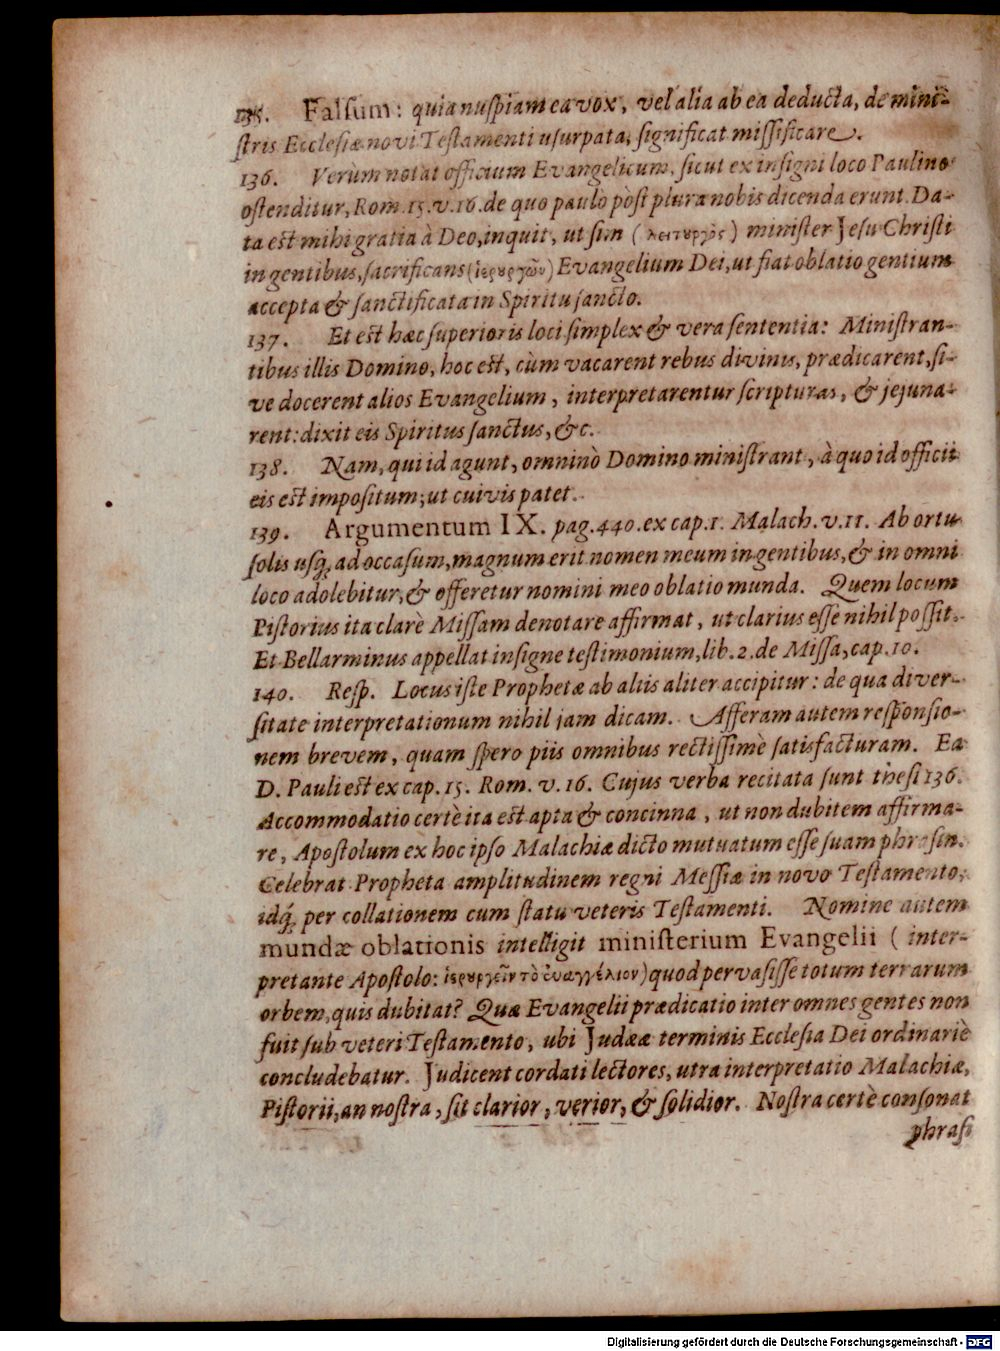 135. Falsum: quia nuspiam ea vox, vel alia ab ea deducta, de mini-
stris Ecclesiæ novi Testamenti usurpata, significat missificare.
136. Verùm notat officium Evangelicum, sicut ex insigni loco Paulino
ostenditur, Rom. 15. v. 16. de quo paulò pòst plura nobis dicenda erunt. Da-
ta est mihi gratia à Deo, inquit, ut sim (λειτουργὸς) minister Jesu Christi
in gentibus, sacrificans (ἱερουργῶν) Evangelium Dei, ut fiat oblatio gentium
accepta & sanctificata in Spiritu sancto.
137. Et est hæc superioris loci simplex & vera sententia: Ministran-
tibus illis Domino, hoc est, cùm vacarent rebus divinis, prædicarent, si-
ve docerent alios Evangelium, interpretarentur scripturas, & jejuna-
rent: dixit eis Spiritus sanctus, &c.
138. Nam, qui id agunt, omninò Domino ministrant, à quo id officii
eis est impositum; ut cuivis patet.
139. Argumentum IX. pag. 440. ex cap. 1. Malach. v. 11. Ab ortu
solis usq; ad occasum, magnum erit nomen meum in gentibus, & in omni
loco adolebitur, & offeretur nomini meo oblatio munda. Quem locum
Pistorius ita clarè Missam denotare affirmat, ut clarius esse nihil possit.
Et Bellarminus appellat insigne testimonium, lib. 2. de Missa, cap. 10.
140. Resp. Locus iste Prophetæ ab aliis aliter accipitur: de qua diver-
sitate interpretationum nihil jam dicam. Afferam autem responsio-
nem brevem, quam spero piis omnibus rectissimè satisfacturam. Ea
D. Pauli est ex cap. 15. Rom. v. 16. Cujus verba recitata sunt thesi 136.
Accommodatio certè ita est apta & concinna, ut non dubitem affirma-
re, Apostolum ex hoc ipso Malachiæ dicto mutuatum esse suam phrasin.
Celebrat Propheta amplitudinem regni Messiæ in novo Testamento,
idq́; per collationem cum statu veteris Testamenti. Nomine autem
mundæ oblationis intelligit ministerium Evangelii (inter-
pretante Apostolo: ἱερουργεῖν τὸ ἐυαγγέλιον) quod pervasisse totum terrarum
orbem, quis dubitat? Quæ Evangelii prædicatio inter omnes gentes non
fuit sub veteri Testamento, ubi Judææ terminis Ecclesia Dei ordinariè
concludebatur. Judicent cordati lectores, utra interpretatio Malachiæ,
Pistorii, an nostra, sit clarior, verior, & solidior. Nostra certè consonat
phrasi
Digitalisierung gefördert durch die Deutsche Forschungsgemeinschaft - DFG